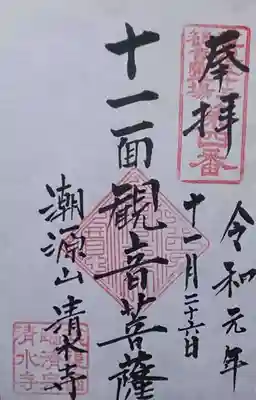 奉拝
令和元年
十一月二十六日
十一面観音菩薩
潮源山 清水寺
清水寺